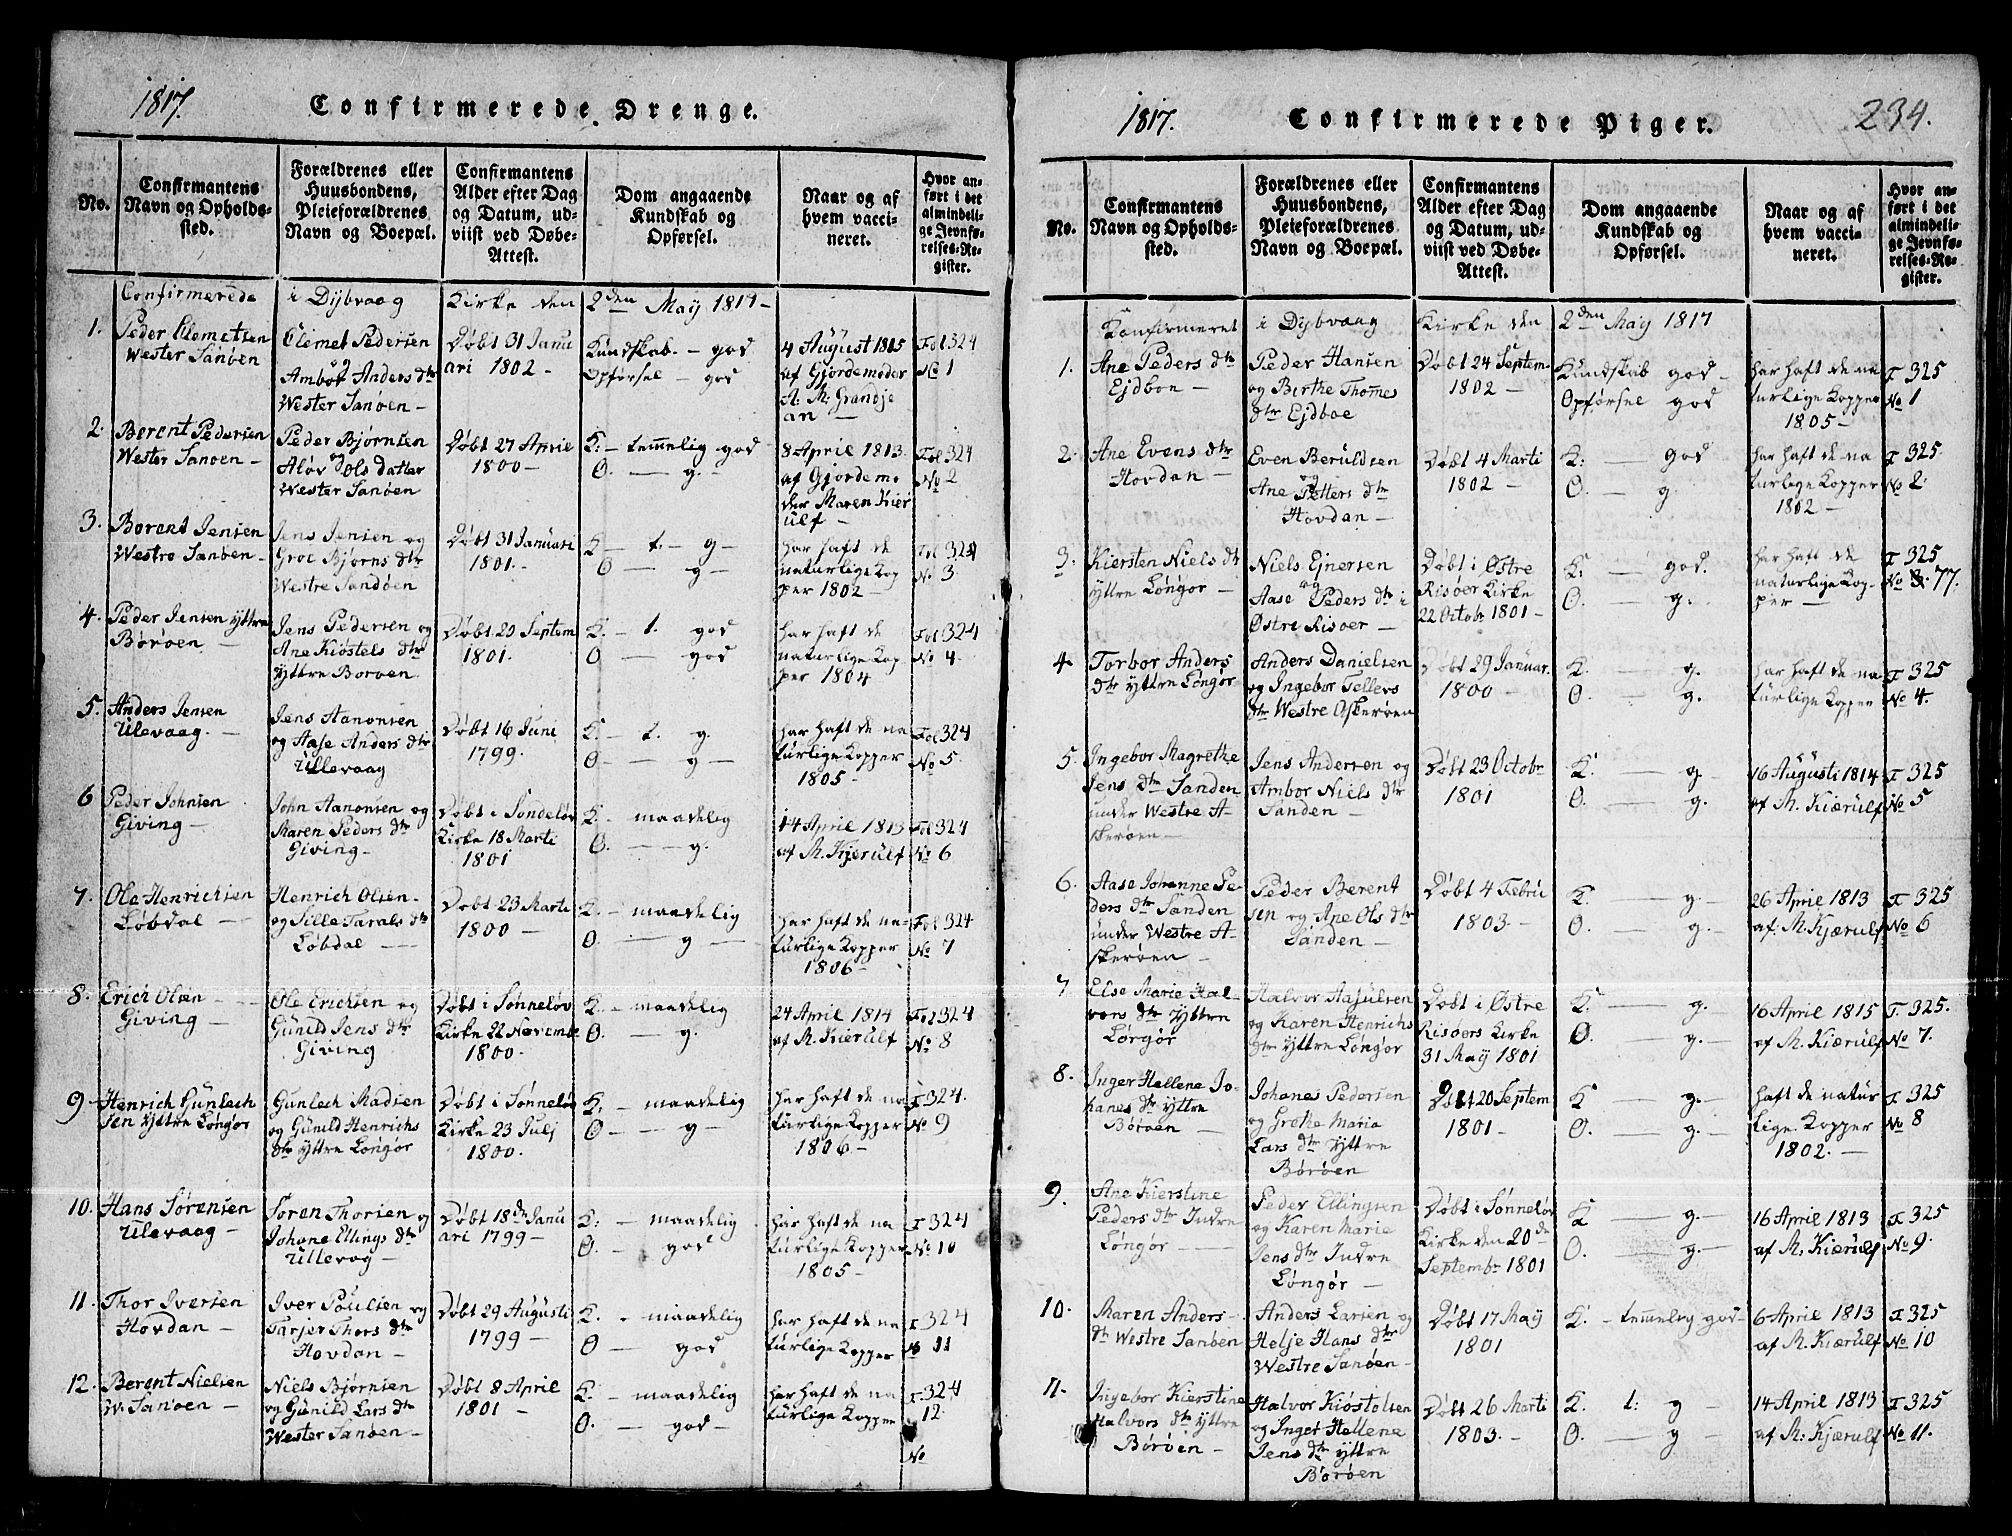 1817.
Confirmerede Drenge.
No.
Confirmantens
Navn og Opholds-
sted.
Forældrenes eller
Huusbondens,
Pleieforældrenes
Navn og Boepæl.
Confirmantens
Alder efter Dag
og Datum, ud-
viist ved Døbe-
Attest.
Dom angaaende
Kundskab og
Opførsel.
Naar og af
hvem vacci-
neret.
Hvor an-
ført i det
almindeli-
ge Jevnfø-
relses-Re-
gister.
Confirmerede i Dybvaag Kirke den 2den May 1817-
1.
Peder Clemetsen
Wester Sanøen
Clemet Pedersen
og
Ambor Anders dtr
Wester Sanøen-
Døbt 31 Janu
ari 1802-
Kundskab.- god
Opførsel- god
4 August 1815
af Gjordemoder
A: M: Grandje
an-
Fol 324
No 1
2.
Berent Pedersen
Wester Sanøen-
Peder Bjørnsen
og
Aløv Ols datter
Wester Sanøen
Døbt 27 Aprie
1800-
K:- temmelig god
O.- g.-
8 April 1813.
af Gjordemo
der Maren Kier
ulf-
Fol 324
No 2
3.
Berent Jensen
Westre Sanøen-
Jens Jensen og
Groe Bjørns dtr
Westre Sandøen
Døbt 31 Januari
1801.-
K- t.- g-
O- g-
har haft de
naturlige Kop
per 1802-
Fol 324
No 3
4.
Peder Jensen yttre
Børøen-
Jens Pedersen og
Ane Kiøstels dtr
Yttre Borøen
Døbt 20 Septem
1801.
K.- t. god
O- god
har haft de
naturlige Kop
per 1804
Fol 324
No 4.
5.
Anders Jensen
Ulevaag.-
Jens Aanonsen
og Aase Anders dtr
Ullevaag
Døbt 16 Juni
1799.-
K- t. g.
O- g-
har haft de na
turlige Kopper
1805-
Fol 324
No 5.
6
Peder Johnsen
Giving-
John Aanonsen og
Maren Peders dtr
Giving-
Døbt i Søndeløv
Kirke 18 Marti
1801
K.- maadelig
O.- g.
14 April 1813
af M. Kjerulf
Fol 324
No 6
7.
Ole Henrichsen
Løbdal-
Henrich Olsen-
og Sille Tarals dtr
Løbdal-
Døbt 23 Marti
1800-
K.- maadelig
O.- g-
har haft de na-
turlige Kopper
1806-
Fol 324
No 7
8.
Erich Olsen-
Giving-
Ole Erichsen og
Gunild Jens dtr
Giving
Døbt i Sønneløv
Kirke 22 Novembr
1800.
K.- maadelig
O.- g.
24 April 1814
af M. Kierulf
Fol 324
No 8
9
Henrich Gunlech
sen Yttre Løngør
Gunlech Madsen
og Gunild Henrichs
dtr Yttre Løngør
Døbt i Sønneløv
Kirke 23 Julj
1800.
K.- maadelig
O- g-
har haft de na
turlige Kopper
1806-
F 324.
No 9
10.
Hans Sørensen
Ulevaag-
Søren Thorsen og
Johane Ellings dtr
Ullevag-
Døbt 18de Janu
ari 1799-
K:- maadelig
O.- god
har haft de na
turlige Kopper
1805-
F 324
No 10
11.
Thor Iversen
Hovdan-
Iver Poulsen og
Tarjer Thors dtr
Hovdan-
Døbt 29 Augusti
1799-
K.- maadelig
O- god
har haft de na
turlige Kopper
F 324
No 11
12.
Berent Nielsen
W. Sanøen-
Niels Bjørnsen
og Gunild Lars dtr
Wester Sanøen-
Døbt 8 April
1801-
K.- maadelig
O.- god-
har haft de na
turlige Kopper
F 324
12.
No
1817.
Confirmerede Piger.
234.
No.
Confirmantens
Navn og Opholds-
sted.
Forældrenes eller
Huusbondens,
Pleieforældrenes
Navn og Boepæl.
Confirmantens
Alder efter Dag
og Datum, ud-
viist ved Døbe-
Attest.
Dom angaaende
Kundskab og
Opførsel.
Naar og af
hvem vacci-
neret.
Hvor an-
ført i det
almindeli-
ge Jevnfø-
relses-Re-
gister.
Konfirmeret i Dybvaag Kirke den 2den May 1817
1.
Ane Peders dtr
Ejdboe-
Peder Hansen
og Birthe Thomes
dtr Ejdboe
Døbt 24 Septem-
1802-
Kundskab god-
Opførsel god
har haft de na
turlige Kopper
1805-
F 325
No 1
2.
Ane Evens dtr
Hovdan-
Even Beruldsen
og
Ane Petters dtr
Hovdan-
Døbt 4 Marti
1802-
K:- god
O.- g.
har haft de na
turlige Kopper
1802-
F 325.
No 2.
3.
Kiersten Niels dtr
Yttre Løngør-
Niels Ejnersen
og
Aase Peders dtr i
Østre Risøer-
Døbt i Østre
Risøer Kirke
22 Octobr 1801-
K:- god.
O.- g.
har haft de
naturlige Kop-
per-
F 325
No 77.
4.
Torbor Anders
dtr Yttre Løngør
Anders Danielsen
og Ingebor Tellevs
dtr Westre Askerøen
Døbt 29 Januar.
1800-
K.- g.
O.- g.
har haft de na
turlige Kopper
F 325
No 4.
5.
Ingebor Magrethe
Jens dtr Sanden
under Westre A-
skerøen-
Jens Andersen og
Ambor Niels dtr
Sanden-
Døbt 23 Octobr
1801
K.- g.-
O.- g.
16 Augusti 1814
af M. Kiærulf
F 325
No 5
6.
Aase Johanne Pe-
ders dtr Sanden
under Westre A-
skerøen-
Peder Berent
sen og Ane Ols dtr
Sanden-
Døbt 4 Febru
1803-
K.- g.-
O.- g.
26 April 1813
af M. Kjærulf
F 325
No 6
7
Else Marie Hal-
vors dtr Yttre
Løngør
Halvor Aasulsen
og Karen Henrichs
dtr Yttre Løngør
Døbt i Østre
Risøers Kirke
31 May 1801
K.- g.
O.- g.-
16 April 1815
af M. Kiærulf
F. 325.
No 7.
8.
Inger Hellene Jo-
hanes dtr Yttre
Børøen-
Johanes Pedersen
og Grethe Maria
Lars dtr Yttre
Børøen
Døbt 20 Septem
1801-
K- g.-
O.- g.-
haft de natur
lige Kopper
1802.-
F 325
No 8
9.
Ane Kierstine
Peders dtr Indre
Løngør-
Peder Ellingsen
og Karen Marie
Jens dtr Indre
Løngør-
Døbt i Sønneløv
Kirke den 20de
Septembr 1801
K- g.-
O.- g.-
16 April 1813
af M. Kiærulf
F 325
No 9.
10.
Maren Anders-
dtr Westre Sanøen
Anders Larsen og
Helje Hans dtr
Westre Sanøen-
Døbt 17 May
1801
K:- temmeleg god-
6 April 1813
af M. Kiærulf
F 325
No 10
11.
Ingebor Kierstine
Halvors dtr Yttre
Børøen-
Halvor Kiøstølsen
og Inger Hellene
Jens dtr Yttre
Børøen
Døbt 26 Marti
1803.-
K. t: g-
O.- g-
14 April 1813
af M: Kjærulf
F 325
No 11.